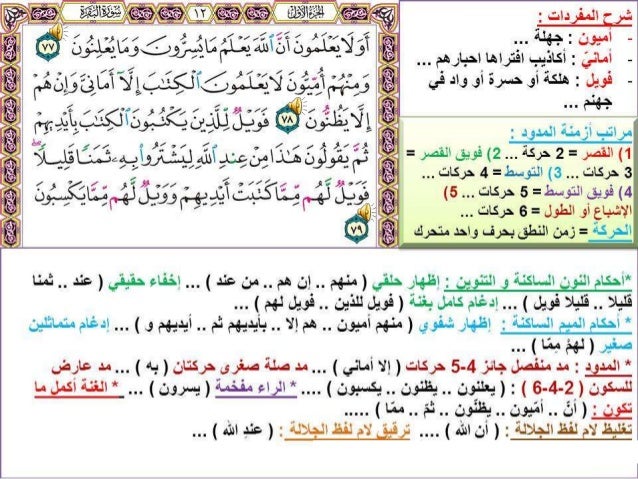 شرح المفردات :
- أميون : جهلة ...
- أمانيّ : أكاذيب افتراها احبارهم ...
- فويل : هلكة أو حسرة أو واد في
جهنم ...
الجزء الأول
١٢
سورة البقرة
أَوَلَا يَعْلَمُونَ أَنَّ ٱللَّهَ يَعْلَمُ مَا يُسِرُّونَ وَمَا يُعْلِنُونَ ٧٧
وَمِنْهُمْ أُمِّيُّونَ لَا يَعْلَمُونَ ٱلْكِتَٰبَ إِلَّآ أَمَانِيَّ وَإِنْ هُمْ
إِلَّا يَظُنُّونَ ٧٨ فَوَيْلٌ لِّلَّذِينَ يَكْتُبُونَ ٱلْكِتَٰبَ بِأَيْدِيهِمْ
ثُمَّ يَقُولُونَ هَٰذَا مِنْ عِندِ ٱللَّهِ لِيَشْتَرُوا۟ بِهِۦ ثَمَنًا قَلِيلًا
فَوَيْلٌ لَّهُم مِّمَّا كَتَبَتْ أَيْدِيهِمْ وَوَيْلٌ لَّهُم مِّمَّا يَكْسِبُونَ
٧٩
مراتب أزمنة المدود :
1) القصر = 2 حركة ... 2) فويق القصر =
3 حركات ... 3) التوسط = 4 حركات ...
4) فويق التوسط = 5 حركات ... 5)
الإشباع أو الطول = 6 حركات ...
الحركة = زمن النطق بحرف واحد متحرك
*أحكام النون الساكنة و التنوين : إظهار حلقي ( منهم .. إن هم .. من عند ) ... إخفاء حقيقي ( عند .. ثمنا
قليلا .. قليلا فويل ) ... إدغام كامل بغنة ( فويل للذين .. فويل لهم ) ...
* أحكام الميم الساكنة : إظهار شفوي ( منهم أميون .. هم إلا .. بأيديهم ثم .. أيديهم و ) ... إدغام متماثلين
صغير ( لهمْ مِمّا ) ...
* المدود : مد منفصل جائز 4-5 حركات ( إلا أماني ) ... مد صلة صغرى حركتان ( به ) ... مد عارض
للسكون ( 2-4-6 ) : ( يعلنون .. يظنون .. يكسبون ) .... * الراء مفخمة ( يسرون ) ... * الغنة أكمل ما
تكون : ( أنّ .. أمّيون .. يظنّون .. ثمّ .. ممّا ) .....
تغليظ لام لفظ الجلالة : ( أن الله ) .... ترقيق لام لفظ الجلالة : ( عند الله ) ...